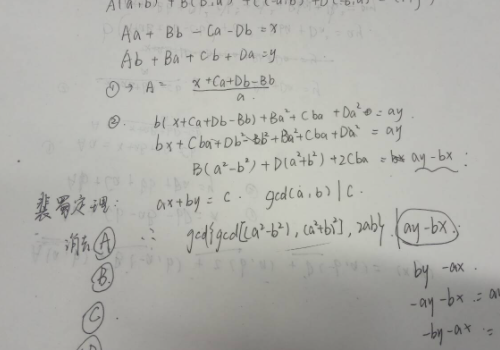 A(a,b) + B(b,a) + C(-a,b) + D(-b,a)
Aa + Bb - Ca - Db = x
Ab + Ba + Cb + Da = y
① → A = (x + Ca + Db - Bb) / a
②. b(x + Ca + Db - Bb) + Ba² + Cba + Da² = ay
bx + Cba + Db² - Bb² + Ba² + Cba + Da² = ay
B(a² - b²) + D(a² + b²) + 2Cba = ay - bx :
裴蜀定理: ax + by = C. gcd(a, b) | C.
消去 Ⓐ ∴ gcd{gcd[(a² - b²), (a² + b²)], 2ab} | ay - bx
Ⓑ by - ax.
-ay - bx =
Ⓒ -by - ax =